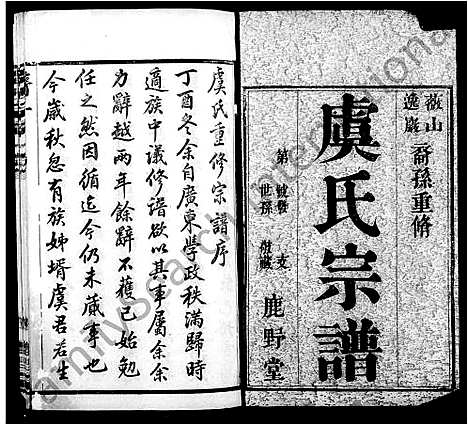 嶽山
逸巖
裔孫重脩
虞氏宗譜
第 號發 支
世孫 收藏
鹿野堂
虞氏重修宗譜序
丁酉冬余自廣東學政秩滿歸時
適族中議修譜欲以其事屬余余
力辭越兩年餘辭不獲已始勉
任之然因循迄今仍未蕆事也
今歲秋忽有族姊壻虞君若生